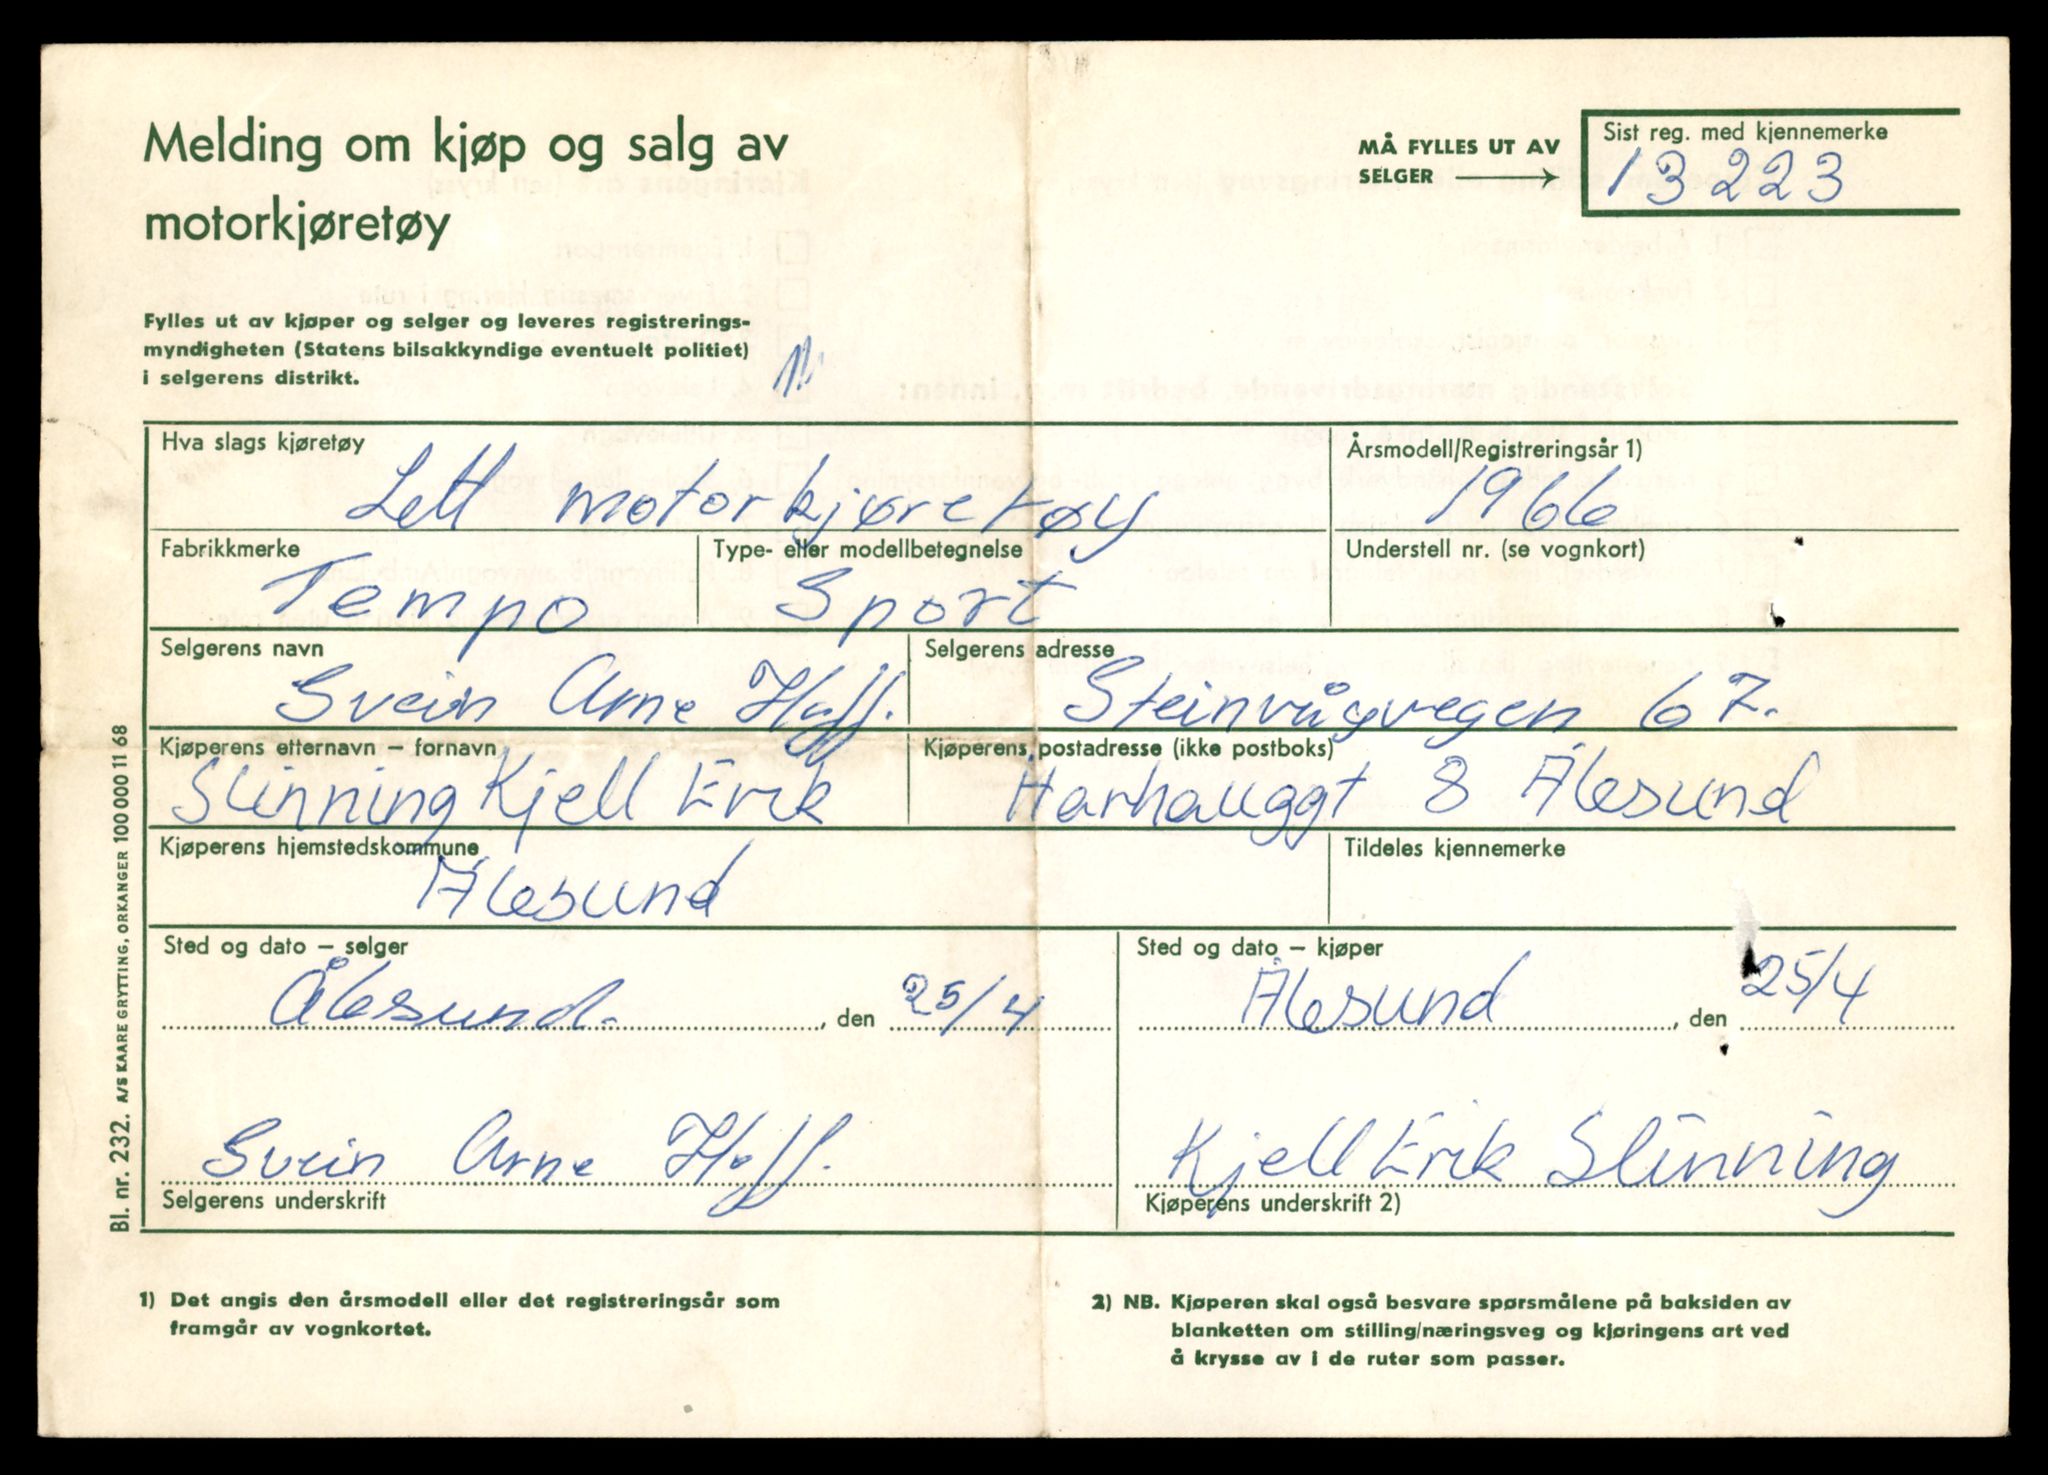 Melding om kjøp og salg av
motorkjøretøy
MÅ FYLLES UT AV
SELGER
Sist reg. med kjennemerke
13223
Fylles ut av kjøper og selger og leveres registrerings-
myndigheten (Statens bilsakkyndige eventuelt politiet)
i selgerens distrikt.
Hva slags kjøretøy
Lett motorkjøretøy
Årsmodell/Registreringsår 1)
1966
Fabrikkmerke
Tempo
Type- eller modellbetegnelse
Sport
Understell nr. (se vognkort)
Selgerens navn
Svein Arne Hoff.
Selgerens adresse
Steinvågvegen 67.
Kjøperens etternavn – fornavn
Slinning Kjell Erik
Kjøperens postadresse (ikke postboks)
Harhauggt 8 Ålesund
Kjøperens hjemstedskommune
Ålesund
Tildeles kjennemerke
Sted og dato – selger
Ålesund. , den 25/4
Sted og dato – kjøper
Ålesund , den 25/4
Svein Arne Hoff.
Selgerens underskrift
Kjell Erik Slinning
Kjøperens underskrift 2)
1) Det angis den årsmodell eller det registreringsår som
framgår av vognkortet.
2) NB. Kjøperen skal også besvare spørsmålene på baksiden av
blanketten om stilling/næringsveg og kjøringens art ved
å krysse av i de ruter som passer.
Bl. nr. 232. A/S KAARE GRYTTING, ORKANGER 100 000 11 68